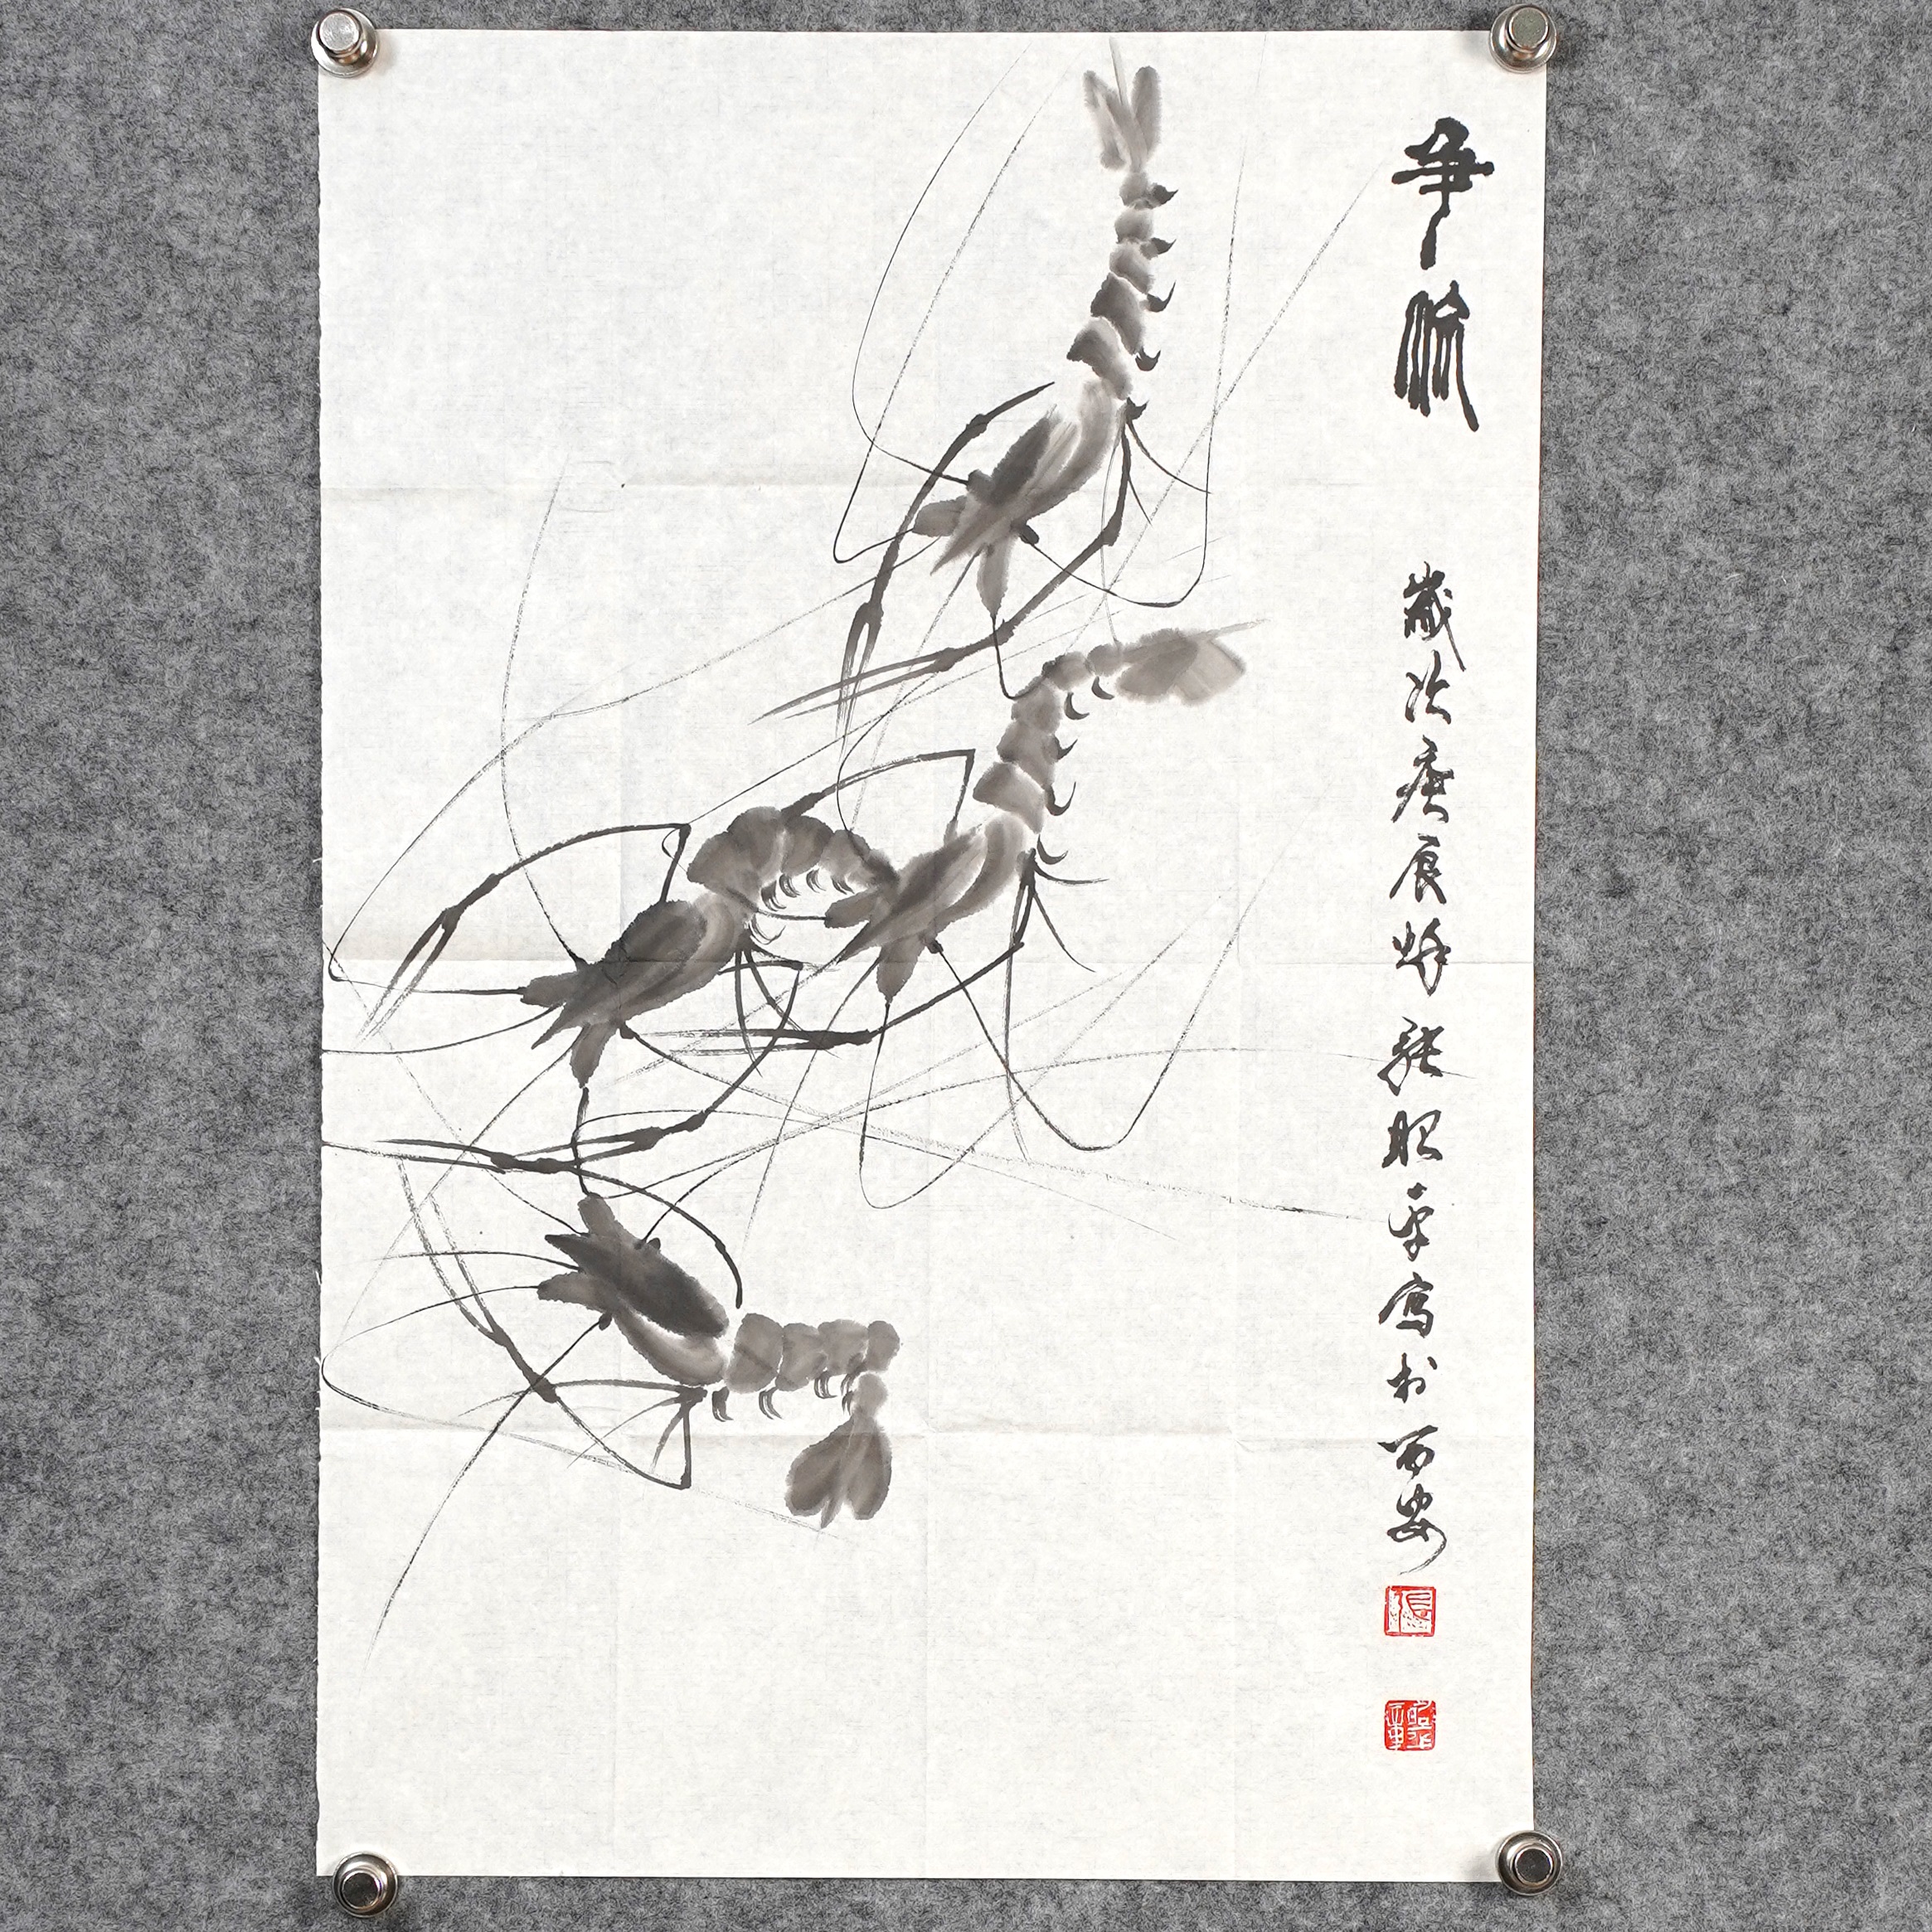 争流
歲次庚辰
張昭平寫於西安